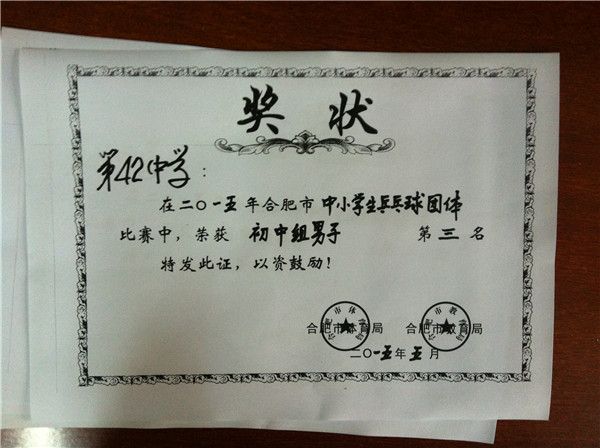 奖状
第42中学：
在二〇一五年合肥市中小学生乒乓球团体
比赛中，荣获 初中组男子 第三名
特发此证，以资鼓励！
合肥市体育局 合肥市教育局
二〇一五年五月